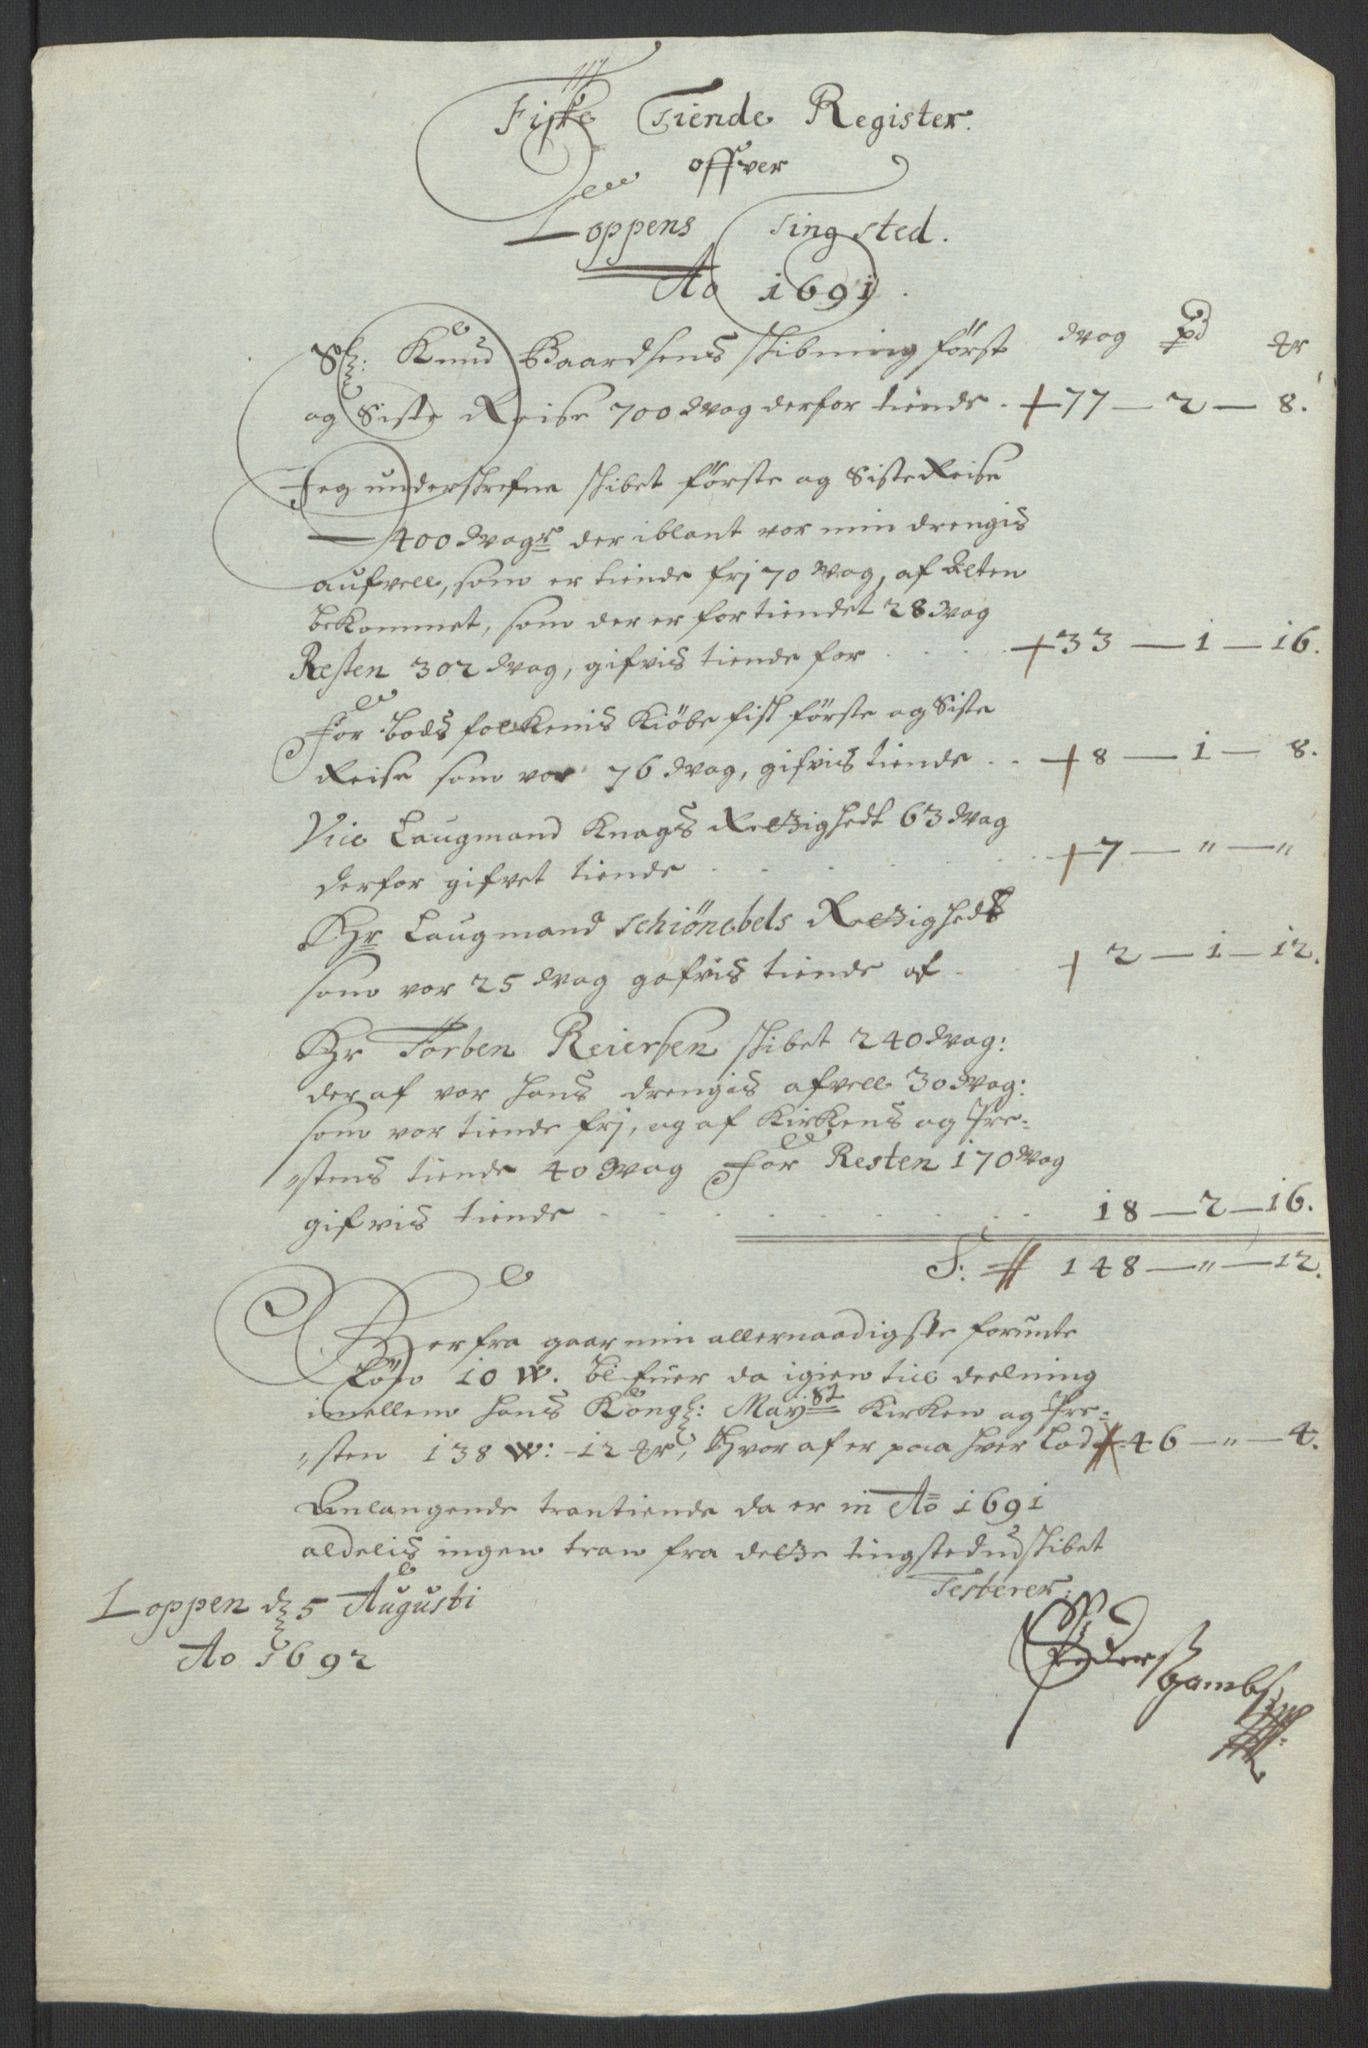 Fiske Tiende Register.
offver
Loppens Tingsted.
Ao 1691.
wog pd mr
Sl: Knud Baardsens skibning först
og Siste Reise 700 wog derfor tiende . 77 — 2 — 8.
Jeg underskrefne skibet förste og Siste Reise
400 wogr der iblant vor min drengis
aufvell, som er tiende frj 70 wog, af Alten
bekommet, som der er fortiendet 28 wog
Resten 302 wog, gifvis tiende for . . . 33 — 1 — 16.
For bods folkenis Kiöbe fisk förste og Siste
Reise som vor 76 wog, gifvis tiende . . 8 — 1 — 8.
Vice Laugmand Knags Rettighedt 63 wog
derfor gifvet tiende . . . 7 — " — "
Hr Laugmand Schiönebels Rettighedt
som vor 25 wog gafvis tiende af . . 2 — 1 — 12.
Hr Torben Reiersen skibet 240 wog:
der af vor hans drengis afvell 30 wog:
som vor tiende frj, og af Kirkens og Pre-
stens tiende 40 wog For Resten 170 wog
gifvis tiende . . . 18 — 2 — 16.
S: 148 — " — 12.
Herfra gaar min allernaadigste forunte
Lön 10 W. blifuer da igien till deelning
imellem hans Kongl: Mayst Kirken og Pre-
sten 138 W: — 12 mr, Hvor af er paa hver Lod 46 — " — 4.
Anlangende trantiende da er in Ao 1691
aldelis ingen tran fra dette tingsted udskibet
Testerer.
Loppen d 5 Augusti
Ao 1692
Peder